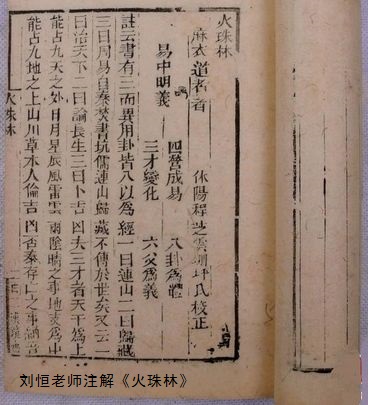 火珠林
麻衣道者著 休陽程芝雲坪氏校正
易中明義
四營成易 八卦為體
三才變化 六爻為義
註云書有三而異用卦皆八以為經一曰連山二曰歸藏
三曰周易自秦焚書坑儒連山歸藏不傳於世矣又云一
曰治天下二曰論長生三曰卜吉凶夫三才者天為上
能占九天之外日月星辰風雷雲雨陰晴之事地為中
能占九地之上山川草木人倫吉凶否泰存亡之事
火珠林
刘恒老师注解《火珠林》